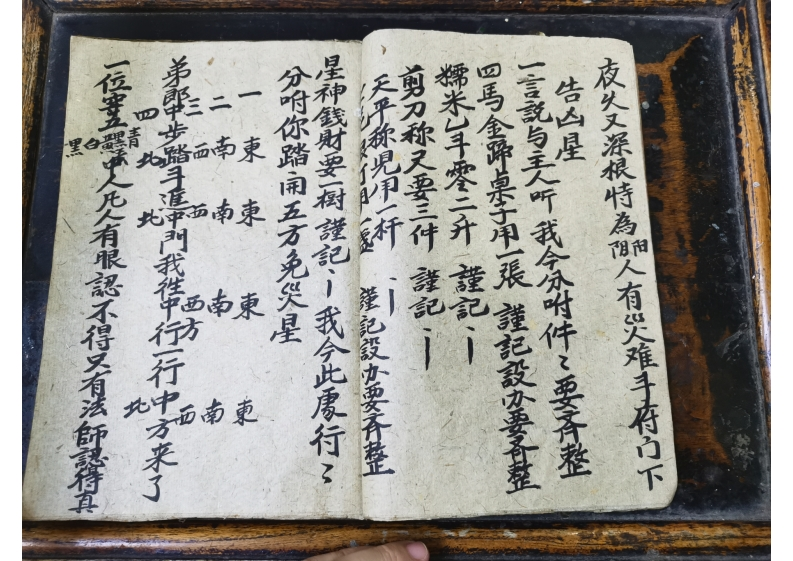 夜久又深根特為阳阴人有災难斗府门下
告凶星
一言説与主人听 我今分咐件〻要斉整
四馬金蹄桌子用一張 謹記設办要斉整
糯米乚斗零二升 謹記〻
剪刀称又要三件 謹記〻
天平称児用一杆 〻
用一盞 謹記設办要斉整
星神錢財要一樹 謹記〻 我今此處行〻
分咐你踏開五方免災星
一 東 東 東 東
二 南 南 南 南
三 西 西 西方 西
四 北 北 北
弟郎中步踏斗進中門我徃中行一行中方来了
一位穿五青白黑中人凡人有眼認不得只有法師認得真